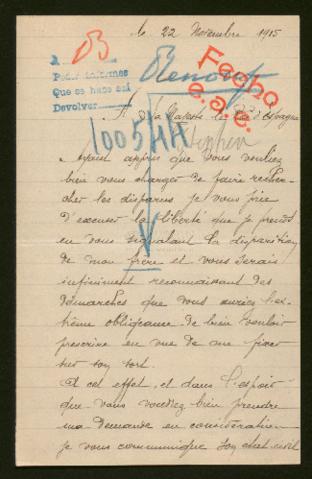 le 22 Novembre 1915
B
Pedir informes
Que se hace así
Devolver
Fecho
e.a.e.
A Sa Majesté le Roi d'Espagne
1005/HH
Ayant appris que vous vouliez
bien vous charger de faire recher-
cher les disparus je vous prie
d'excuser la liberté que je prends
en vous signalant la disparition
de mon frère et vous serais
infiniment reconnaissant des
démarches que vous auriez l'ex-
trême obligeance de bien vouloir
prescrire en vue de me fixer
sur son sort.
A cet effet, et dans l'espoir
que vous voudrez bien prendre
ma demande en considération
je vous communique son état-civil